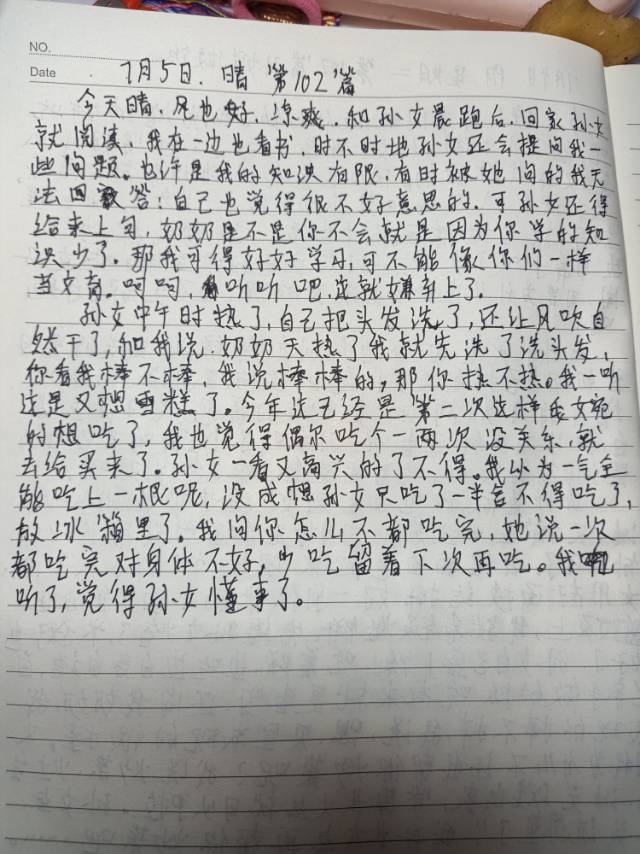 NO.
Date
7月5日.晴 "第102"篇
今天晴,风也好,凉爽,和孙女晨跑后,回家孙女
就阅读,我在一边也看书,时不时地孙女还会提问我一
些问题。也许是我的知识有限,有时被她问的我无
法回答;自己也觉得很不好意思的.可孙女还得
给来上句,奶奶是不是你不会就是因为你学的知
识少了。那我可得好好学习,可不能像你们一样
当文盲。呵呵,听听吧,这就嫌弃上了。
孙女中午时热了,自己把头发洗了,还让风吹自
然干了,和我说.奶奶天热了我就先洗了洗头发,
你看我棒不棒,我说棒棒的,那你热不热。我一听
这是又想雪糕了。今年这已经是第二次这样委婉
的想吃了,我也觉得偶尔吃个一两次没关系,就
去给买来了。孙女一看又高兴的了不得。我以为一气全
能吃上一根呢,没成想孙女只吃了一半舍不得吃了,
放冰箱里了。我问你怎么不都吃完,她说一次
都吃完对身体不好,少吃留着下次再吃。我
听了,觉得孙女懂事了。